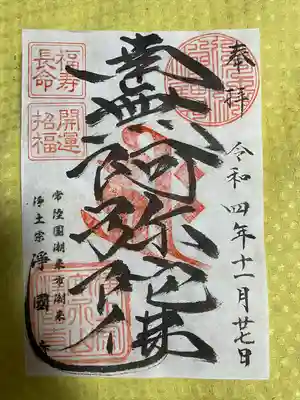 奉拝
令和四年十一月廿七日
南無阿弥陀佛
福寿
長命
開運
招福
常陸國潮来市潮来
浄土宗 浄國寺